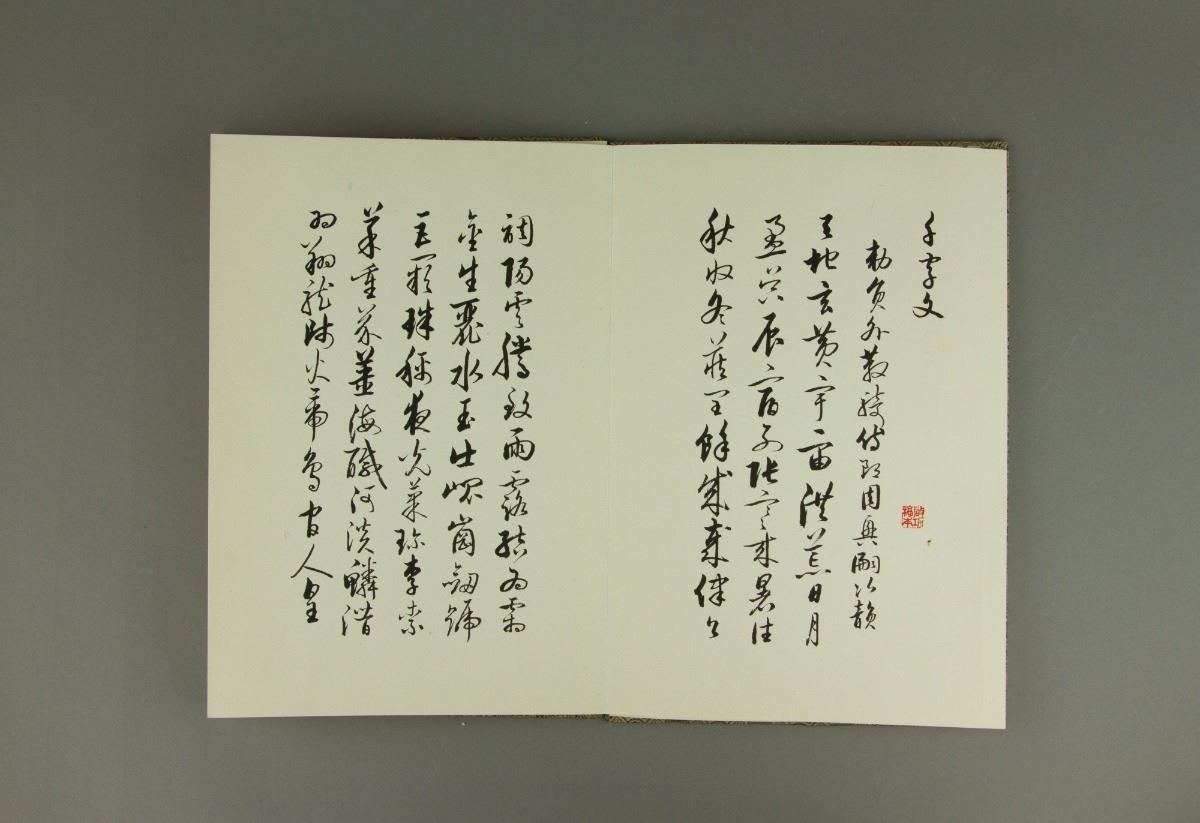 千字文
勅員外散騎侍郎周興嗣次韻
天地玄黃宇宙洪荒日月
盈昃辰宿列張寒來暑往
秋收冬藏閏餘成歲律呂
調陽雲騰致雨露結為霜
金生麗水玉出崐崗劒號
巨闕珠稱夜光菓珍李柰
菜重芥薑海醎河淡鱗潛
羽翔龍師火帝鳥官人皇